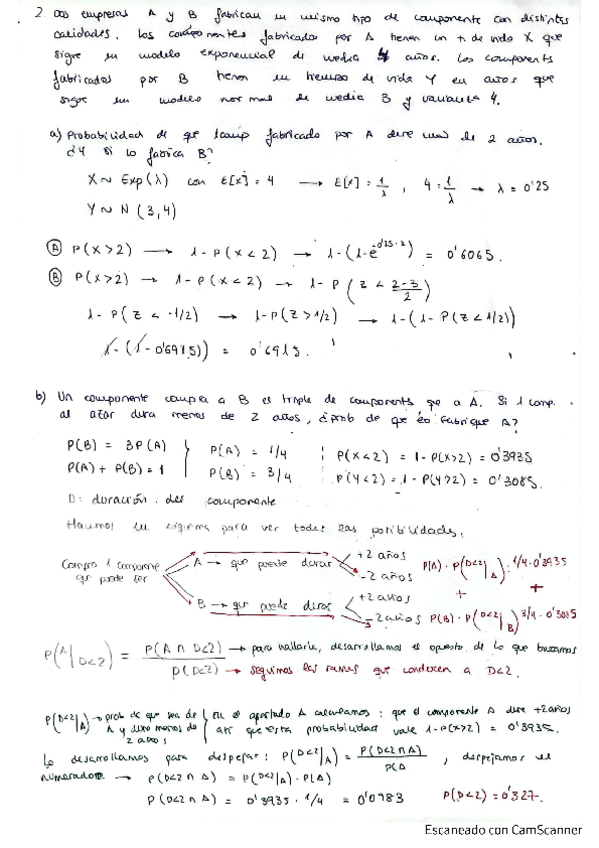 2. Dos empresas A y B fabrican un mismo tipo de componente con distintas
calidades. Los componentes fabricados por A tienen un t. de vida X que
sigue un modelo exponencial de media 4 años. Los components
fabricados por B tienen un tiempo de vida Y en años que
sigue un modelo normal de media 3 y varianza 4.
a) Probabilidad de que 1 comp fabricado por A dure más de 2 años.
¿Y si lo fabrica B?
X ~ Exp(λ) con E[x] = 4 → E[x] = 1/λ , 4 = 1/λ → λ = 0'25
Y ~ N (3,4)
Ⓐ P(X>2) → 1-P(X<2) → 1-(1-e^-0'25·2) = 0'6065.
Ⓑ P(X>2) → 1-P(X<2) → 1-P (Z < 2-3/2)
1-P(Z < -1/2) → 1-P(Z>1/2) → 1-(1-P(Z<1/2))
1-(1-0'6915)) = 0'6915.
b) Un componente compra a B el triple de components que a A. Si 1 comp.
al azar dura menos de 2 años, ¿prob de que lo fabrique A?
P(B) = 3P(A)
P(A) + P(B) = 1
P(A) = 1/4
P(B) = 3/4
P(X<2) = 1-P(X>2) = 0'3935
P(Y<2) = 1-P(Y>2) = 0'3085.
D: duración del componente
Hacemos un esquema para ver todas las posibilidades.
Compro 1 componente
que puede ser
A → que puede durar
+2 años
-2 años P(A) · P(D<2/A) = 1/4 · 0'3935
+ +
B → que puede durar
+2 años
-2 años P(B) · P(D<2/B) 3/4 · 0'3085
P(A/D<2) = P(A ∩ D<2)/P(D<2) → para hallarla, desarrollamos el opuesto de lo que buscamos
→ seguimos las ramas que conducen a D<2.
P(D<2/A) → prob de que sea de
A y dure menos de
2 años
En el apartado A calculamos: que el componente A dure +2 años
así que esta probabilidad vale 1-P(x>2) = 0'3935.
Lo desarrollamos para despejar: P(D<2/A) = P(D<2 ∩ A)/P(A , despejamos el
numerador → P(D<2 ∩ A) = P(D<2/A) · P(A)
P(D<2 ∩ A) = 0'3935 · 1/4 = 0'0983 P(D<2) = 0'327.
Escaneado con CamScanner